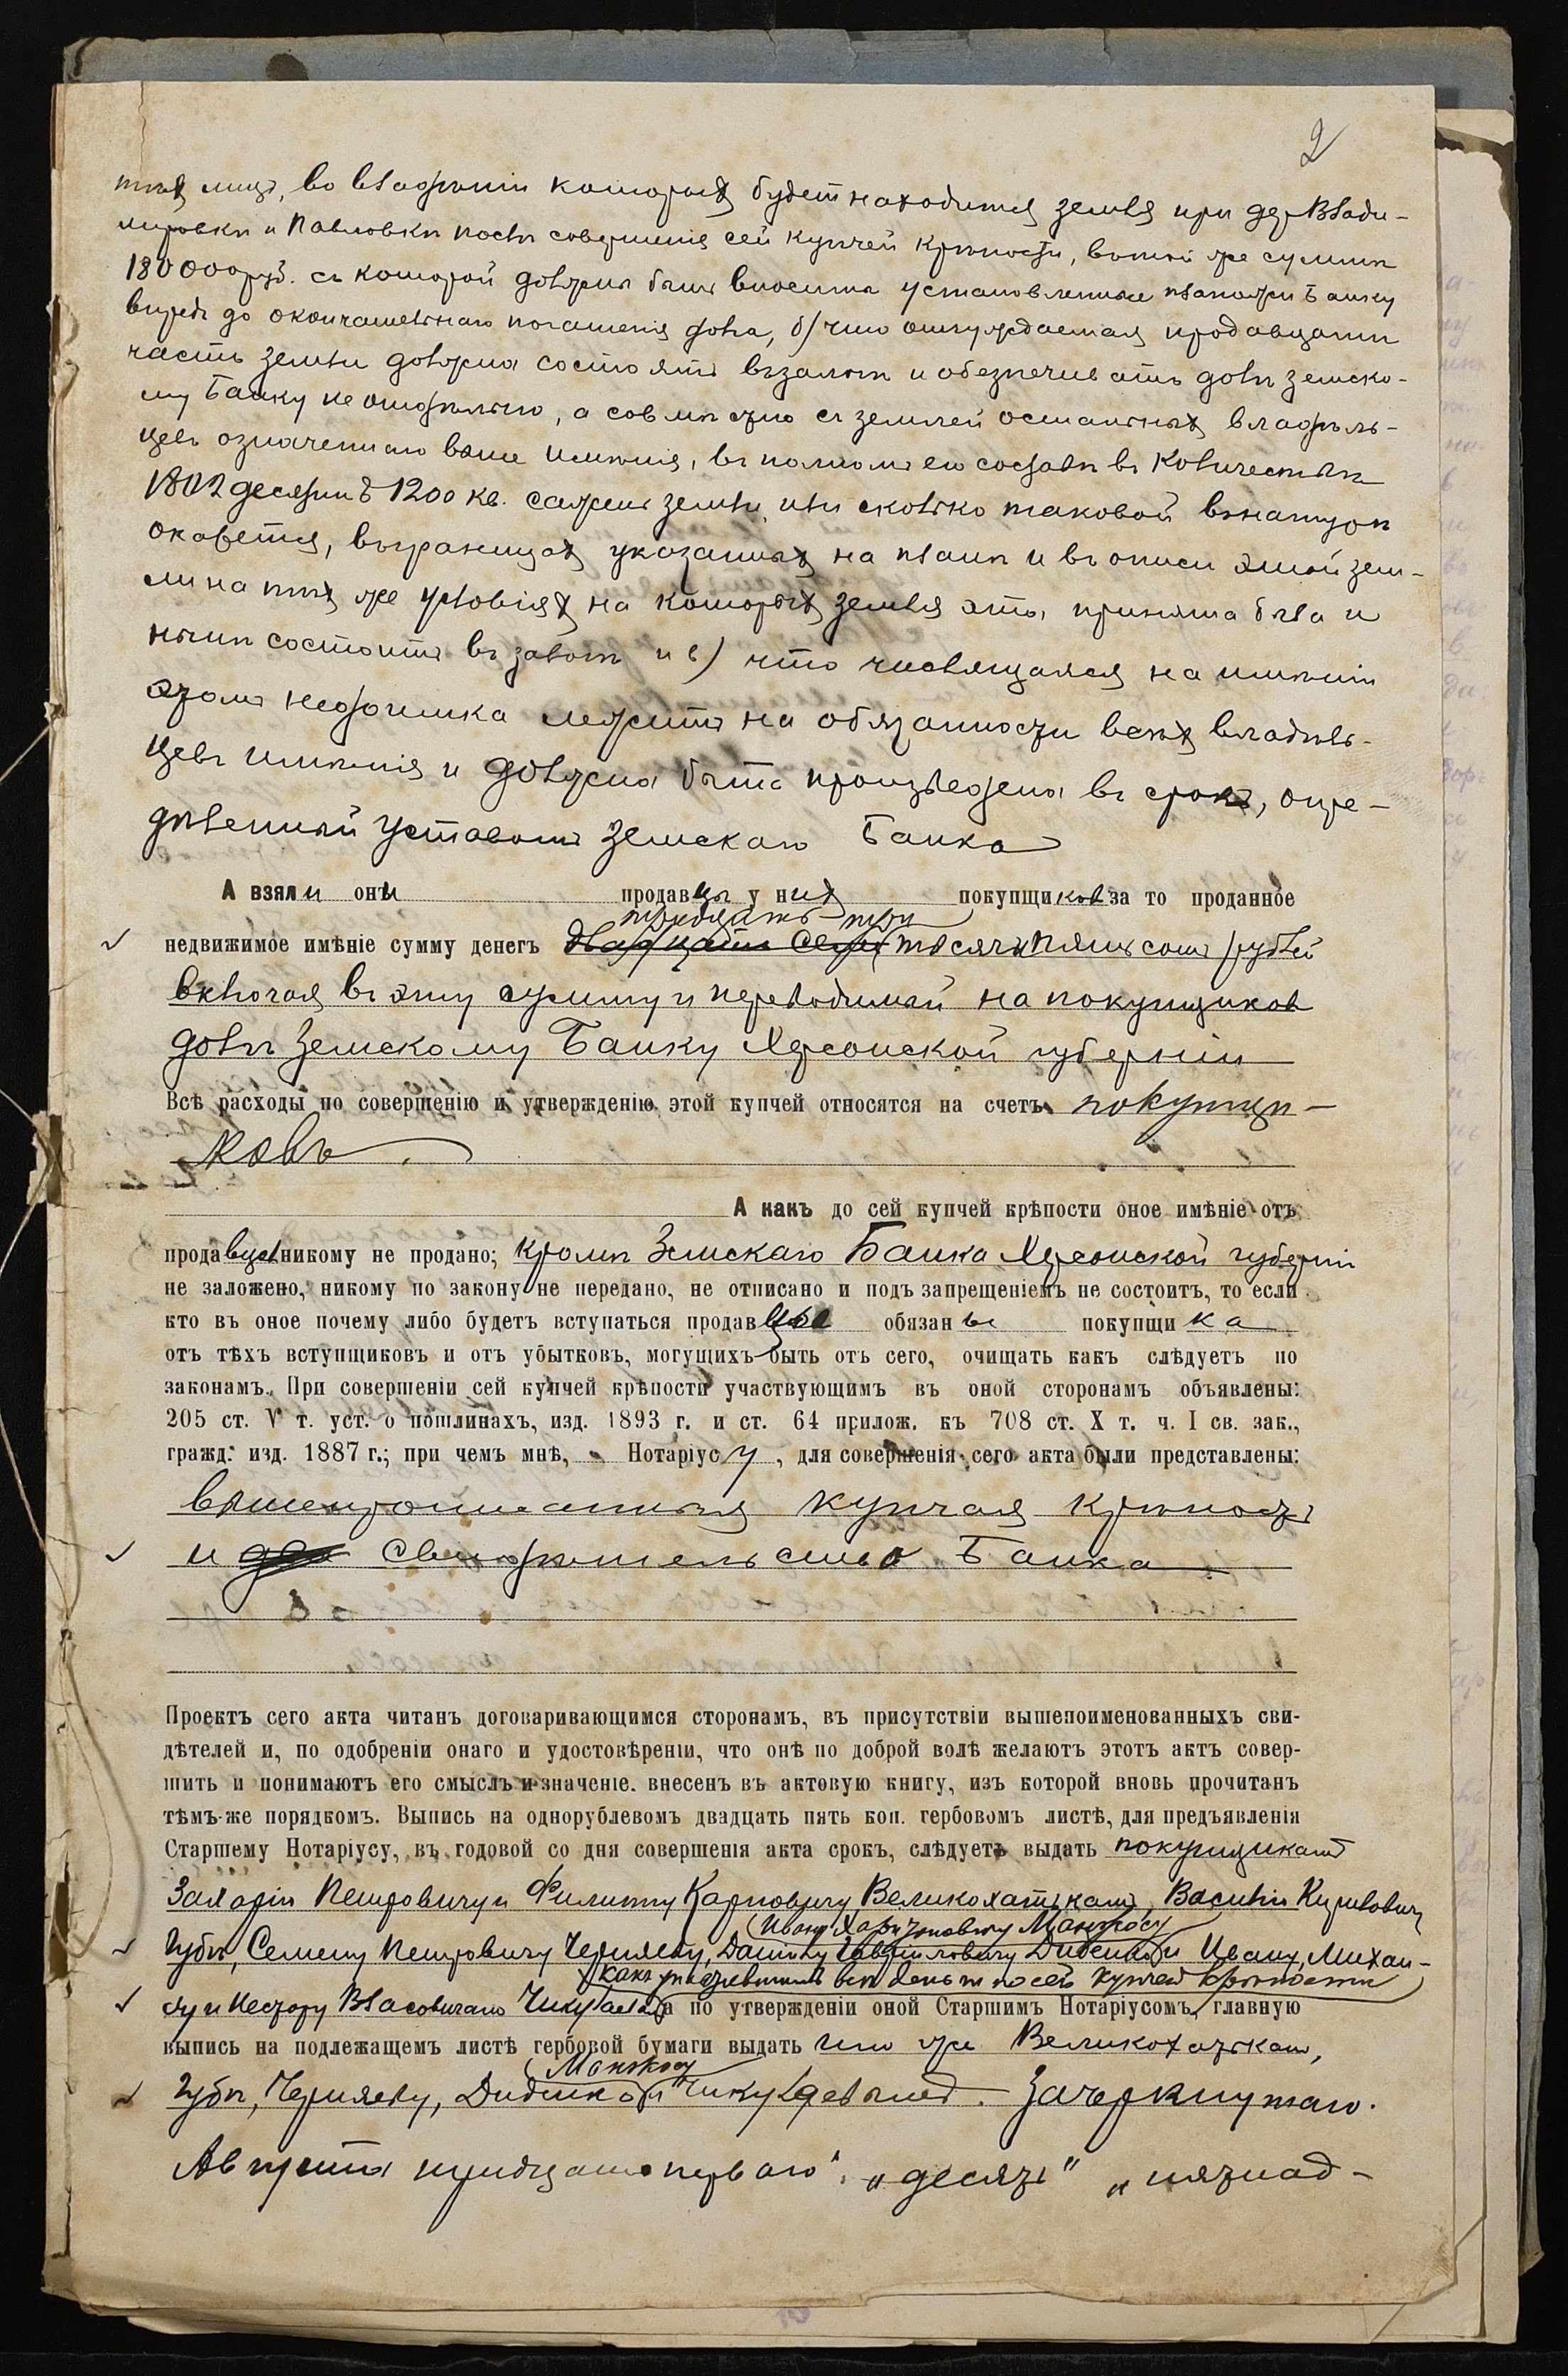 2
тѣхъ лицъ, во владѣніи которыхъ будетъ находиться земля при дер. Влади-
міровкѣ и Павловкѣ послѣ совершенія сей купчей крѣпости, въ той же суммѣ
180000 руб. съ которой должны быть вносимы установленные платежи Банку
впредь до окончательнаго погашенія долга, б) что отчуждаемая продавцами
часть земли должна состоять въ залогѣ и обезпечивать долгъ Земско-
му Банку не отдѣльно, а совмѣстно съ землей остальныхъ владѣль-
цевъ означеннаго выше имѣнія, въ полномъ его составѣ въ количествѣ
1802 десятинъ 1200 кв. сажень земли, или сколько таковой въ натурѣ
окажется, въ границахъ указанныхъ на планѣ и въ описи этой зем-
ли на тѣхъ же условіяхъ на которыхъ земля эта принята была и
нынѣ состоитъ въ залогѣ и в) что числящаяся на имѣніи
этомъ недоимка лежитъ на обязанности всѣхъ владѣль-
цевъ имѣнія и должна быть произведена въ срокъ, опре-
дѣленный Уставомъ Земскаго Банка
А взяли онѣ продавцы у нихъ покупщиковъ за то проданное
тридцать три
недвижимое имѣніе сумму денегъ двадцать семь тысячъ пятьсотъ рублей
включая въ эту сумму и переводимый на покупщиковъ
долгъ Земскому Банку Херсонской губерніи
Всѣ расходы по совершенію и утвержденію этой купчей относятся на счетъ покупщи-
ковъ.
А какъ до сей купчей крѣпости оное имѣніе отъ
продавцевъ никому не продано; кромѣ Земскаго Банка Херсонской губерніи
не заложено, никому по закону не передано, не отписано и подъ запрещеніемъ не состоитъ, то если
кто въ оное почему либо будетъ вступаться продавцы обязаны покупщика
отъ тѣхъ вступщиковъ и отъ убытковъ, могущихъ быть отъ сего, очищать какъ слѣдуетъ по
законамъ. При совершеніи сей купчей крѣпости участвующимъ въ оной сторонамъ объявлены:
205 ст. V т. уст. о пошлинахъ, изд. 1893 г. и ст. 64 прилож. къ 708 ст. X т. ч. I св. зак.,
гражд. изд. 1887 г.; при чемъ мнѣ, Нотаріусу, для совершенія сего акта были представлены:
вышепрописанная купчая крѣпость
и два свидѣтельство Банка
Проектъ сего акта читанъ договаривающимся сторонамъ, въ присутствіи вышепоименованныхъ сви-
дѣтелей и, по одобреніи онаго и удостовѣреніи, что онѣ по доброй волѣ желаютъ этотъ актъ совер-
шить и понимаютъ его смыслъ и значеніе. внесенъ въ актовую книгу, изъ которой вновь прочитанъ
тѣмъ-же порядкомъ. Выпись на однорублевомъ двадцать пять коп. гербовомъ листѣ, для предъявленія
Старшему Нотаріусу, въ годовой со дня совершенія акта срокъ, слѣдуетъ выдать покупщикамъ
Захарію Петровичу и Филиппу Карповичу Великохатькамъ, Василію Кириловичу
Ивану Харитоновичу Манжосу
Губѣ, Семену Петровичу Черняеву, Даніилу Гавріиловичу Диденко и Ивану, Михаи-
какъ уплатившимъ всѣ деньги по сей купчей крѣпости
лу и Нестору Власовичамъ а по утвержденіи оной Старшимъ Нотаріусомъ, главную
выпись на подлежащемъ листѣ гербовой бумаги выдать имъ же Великохатькамъ,
Манжосу
Губѣ, Черняеву, Диденко и зачеркнутаго.
Августа тридцать перваго", "десять" "пятнад-